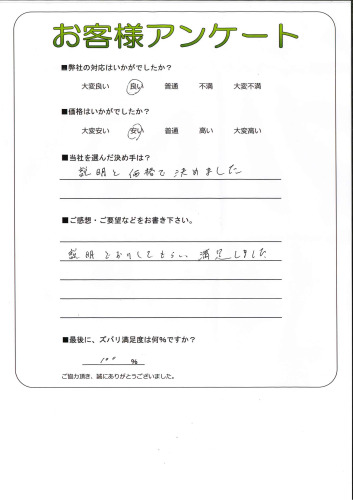 お客様アンケート
■弊社の対応はいかがでしたか？
大変良い 良い 普通 不満 大変不満
■価格はいかがでしたか？
大変安い 安い 普通 高い 大変高い
■当社を選んだ決め手は？
説明と価格で決めました
■ご感想・ご要望などをお書き下さい。
説明どおりしてもらい満足しました
■最後に、ズバリ満足度は何％ですか？
100 %
ご協力頂き、誠にありがとうございました。